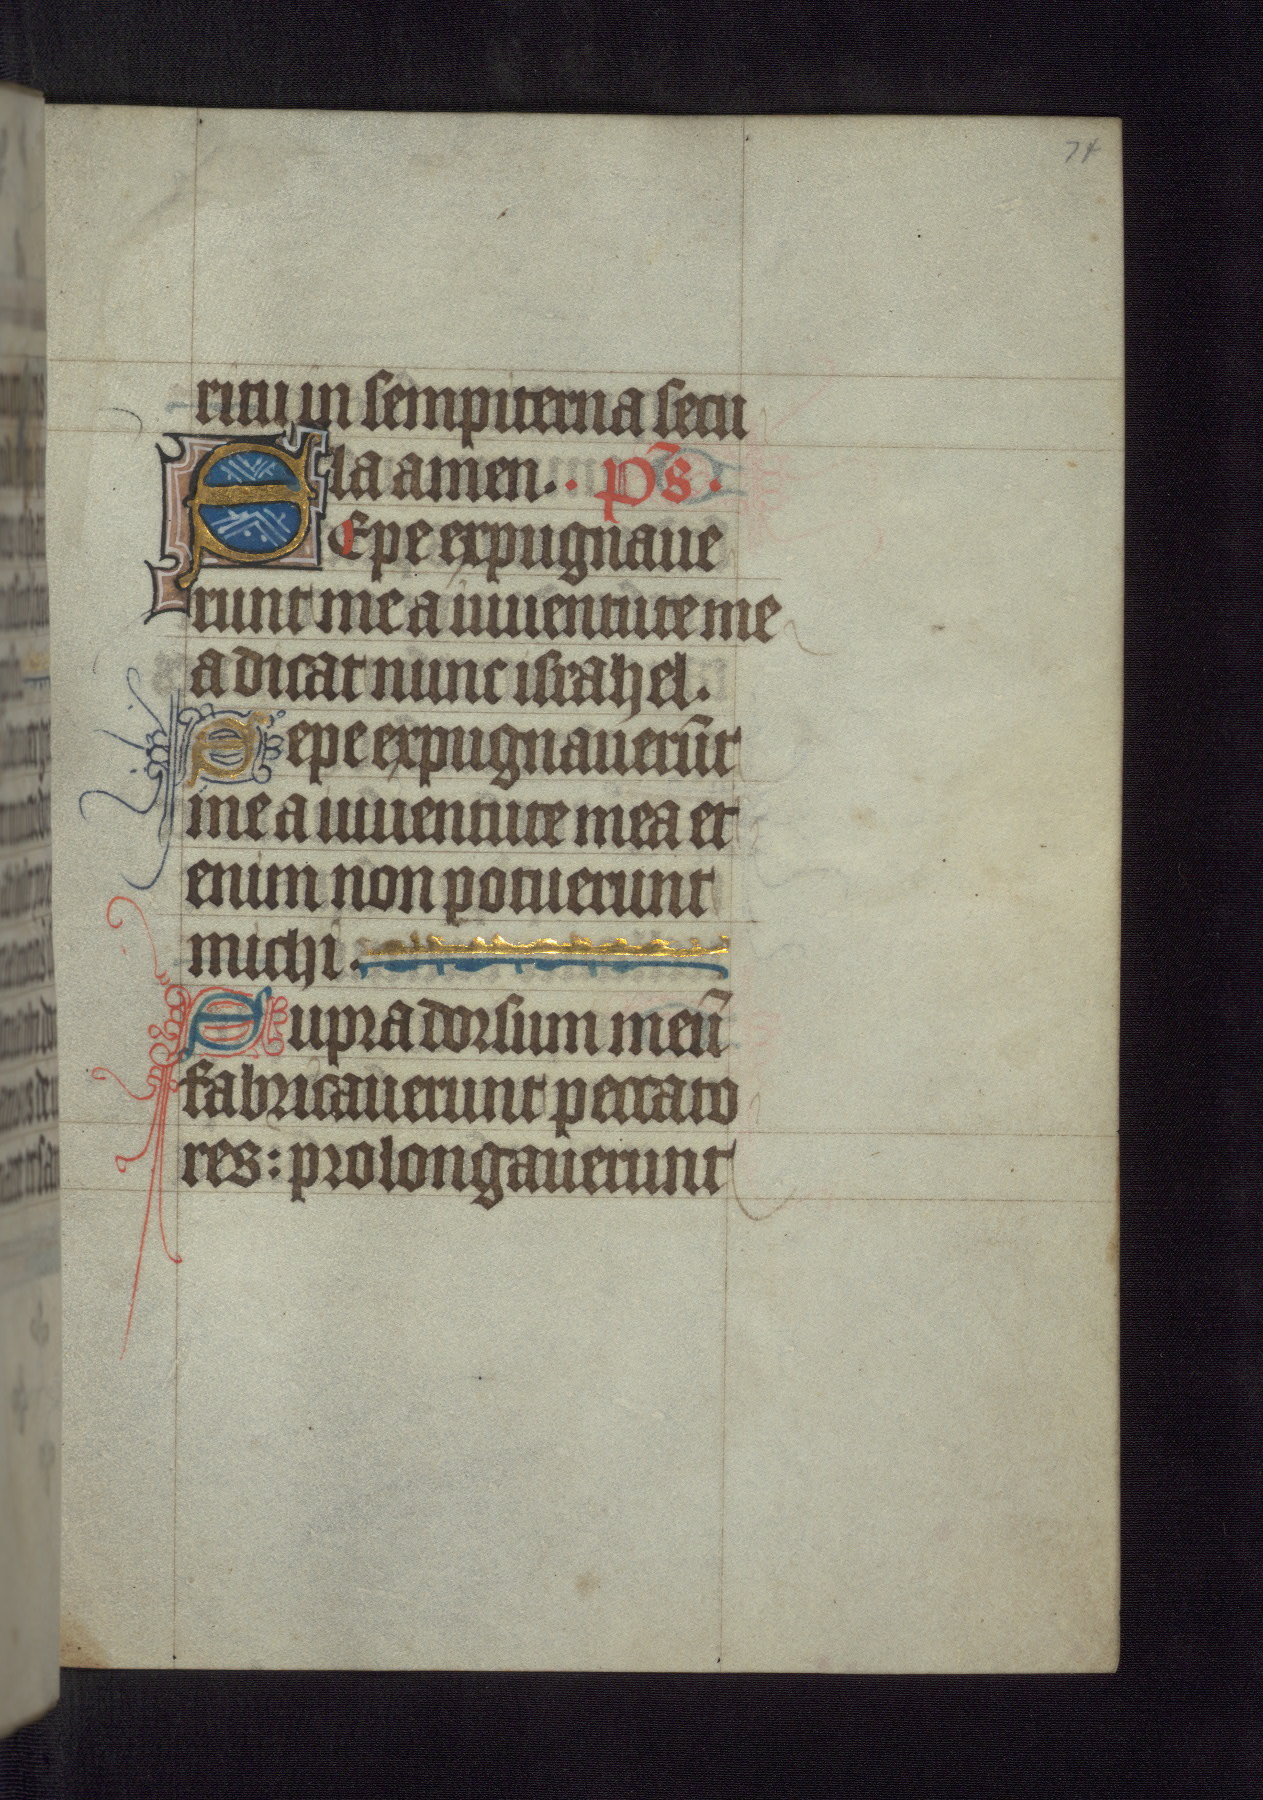 74
ritu in sempiterna secu
la amen. . p̄s .
SEpe expugnaue
runt me a iuuentute me
a dicat nunc israhel.
Sepe expugnauerūt
me a iuuentute mea et
enim non potuerunt
michi.
Supra dorsum meū
fabricauerunt peccato
res: prolongauerunt